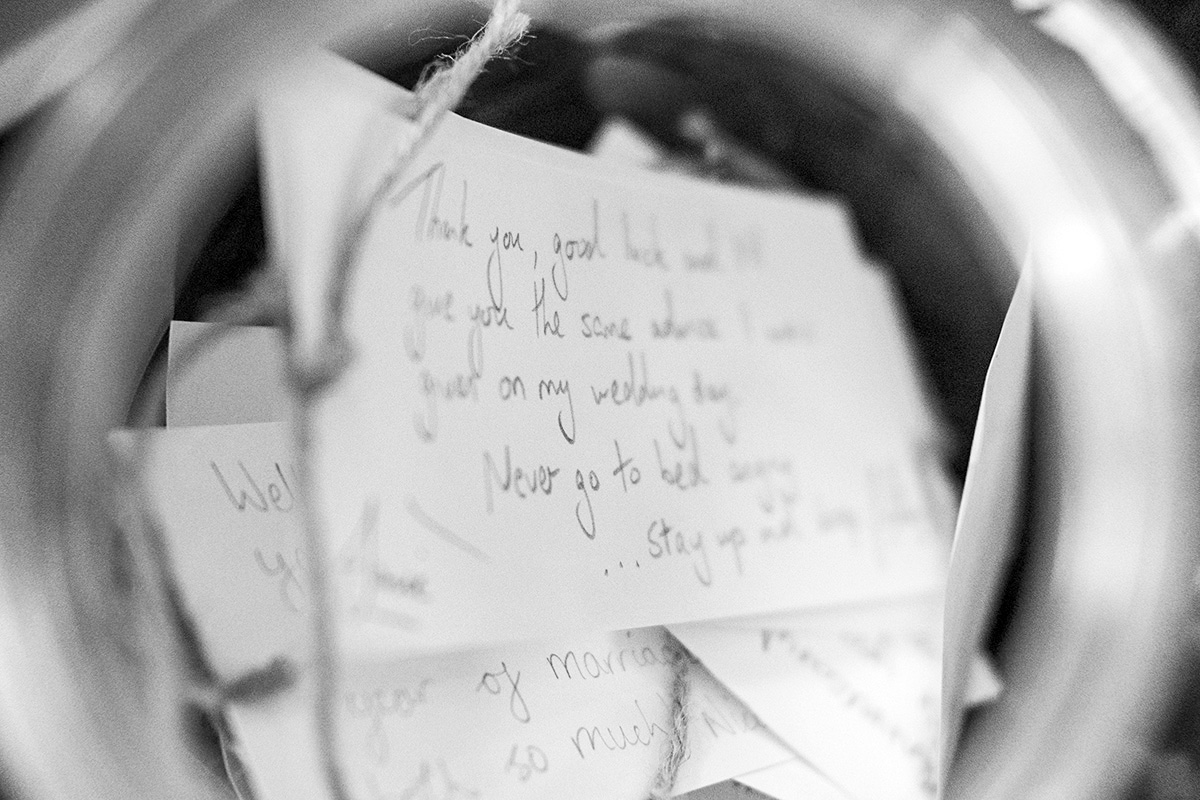 Thank you, good luck and I'll
give you the same advice I was
given on my wedding day
Never go to bed angry
...stay up and
Wel
ye
year of marriage
so much